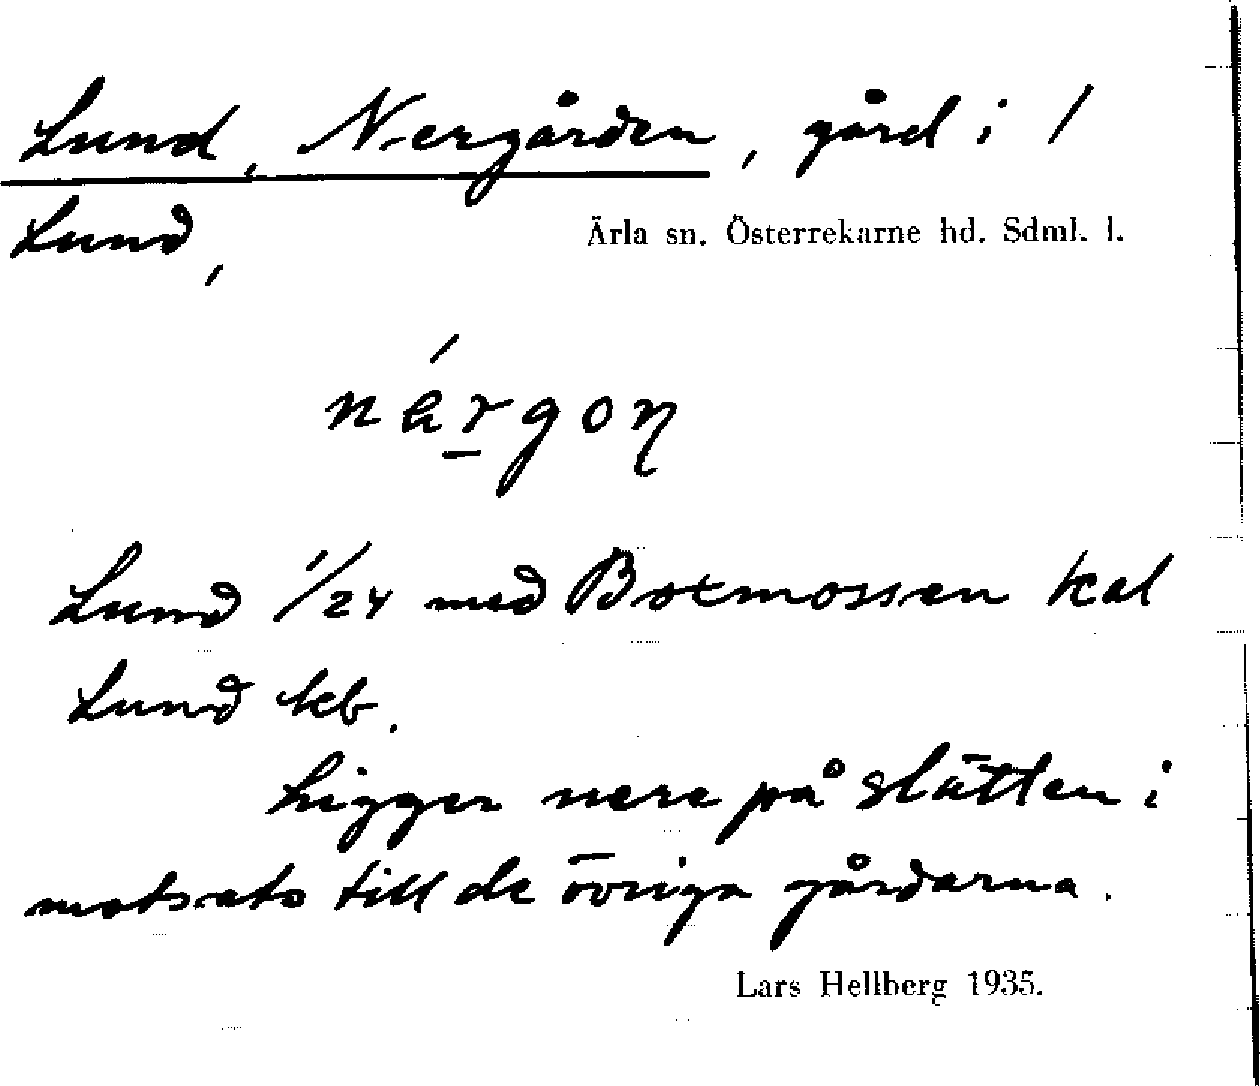 Lund, Nergården, gård i /
Lund,
Ärla sn. Österrekarne hd. Sdml. l.
nérgon
Lund 1/24 med Botmossen kal
Lund kb.
Ligger nere på slätten i
motsats till de övriga gårdarna.
Lars Hellberg 1935.